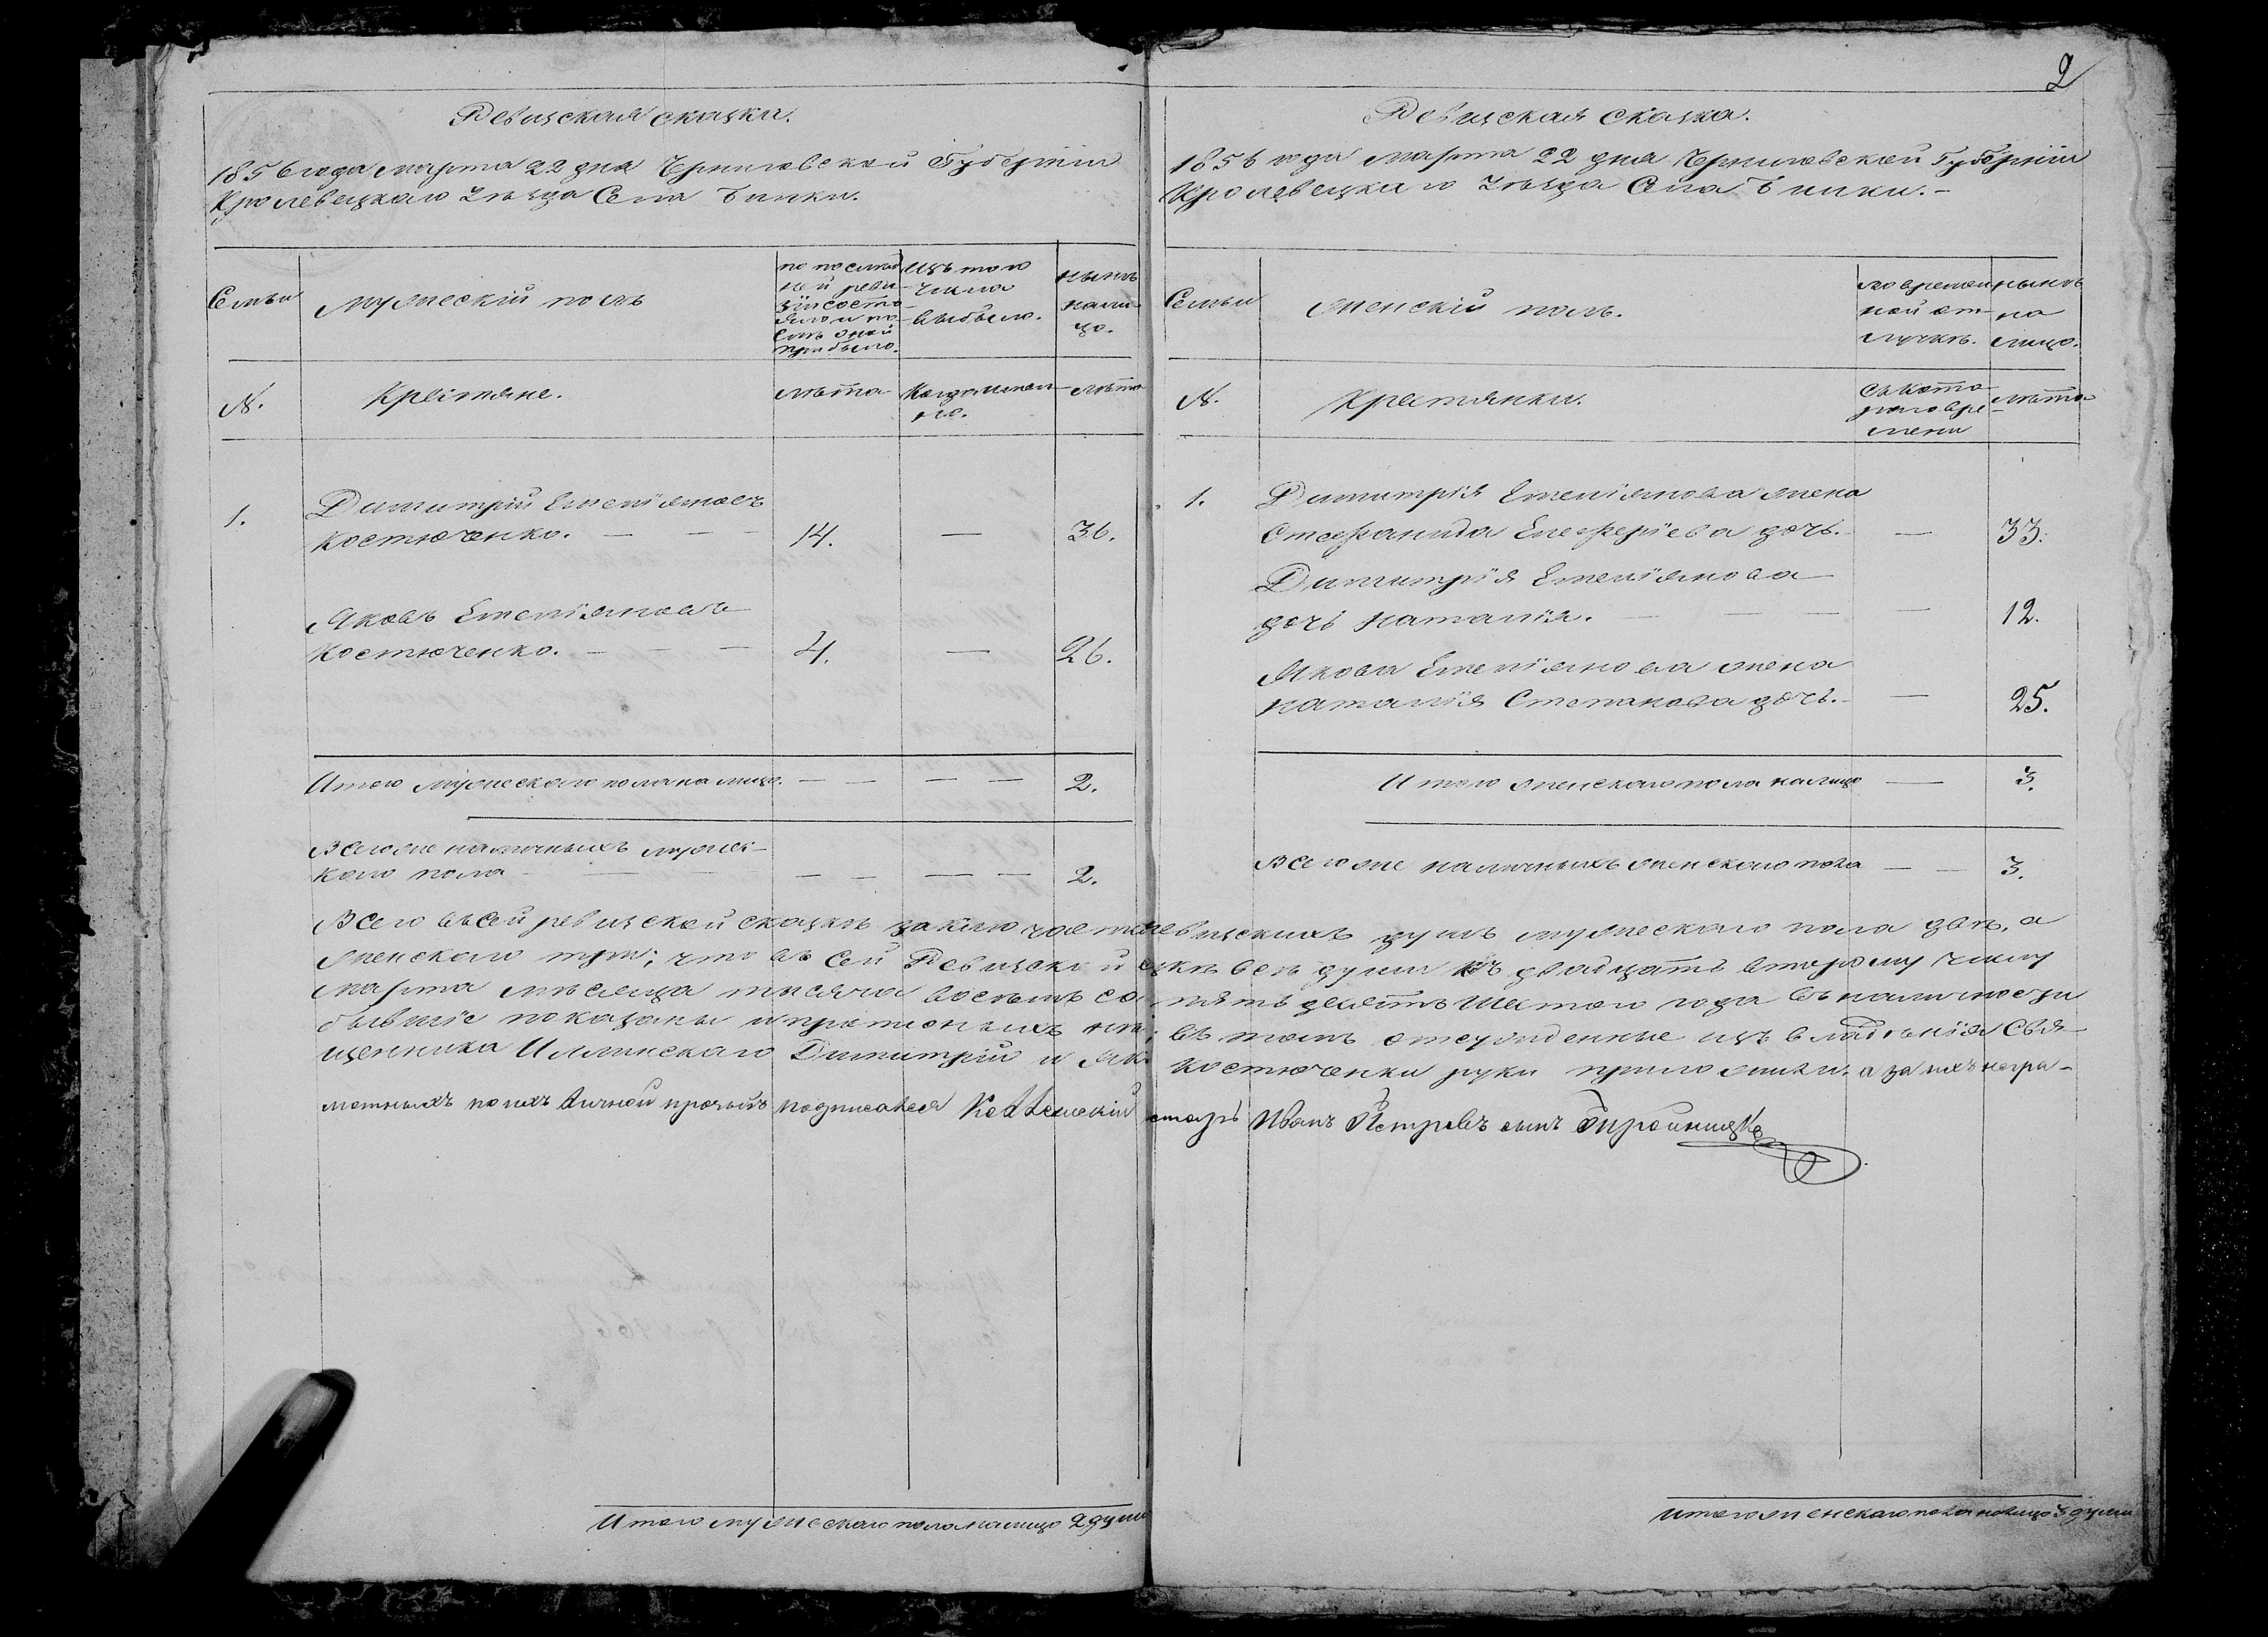 2
Ревизская сказка.
1856 года марта 22 дня Черниговской Губерніи
Кролевецкаго Уѣзда Села Тулики.
Семьи
Мужескій полъ
по послѣд-
ней реви-
зіи состо-
яло и по-
слѣ оной
прибыло.
Изъ того
числа
выбыло.
Нынѣ
нали-
цо.
№.
Крестяне.
Лѣта
Когда имен-
но.
Лѣта
1.
Димитрій Емеліяновъ
Костюченко. — — —
14.
—
36.
Яковъ Емеліяновъ
Костюченко. — — —
4.
—
26.
Итого мужескаго пола на лицо. — — — — 2.
Всего же наличныхъ мужес-
каго пола — — — — — — — 2.
Ревизская сказка.
1856 года марта 22 дня Черниговской Губерніи
Кролевецкаго Уѣзда Села —
Семьи
Женскій полъ.
Во времен-
ной от-
лучкѣ.
Нынѣ
на
лицо.
№.
Крестянки.
Съ кото-
раго вре-
мени
Лѣта
1.
Димитрія Емеліянова жена
Стефанида Елеферіева дочь.
—
33.
Димитрія Емеліянова
дочь Наталія. — — —
—
12.
Якова Емеліянова жена
Наталія Степанова дочь.
—
25.
Итого женскаго пола налицо — 3.
Всего же наличныхъ женскаго пола — — 3.
Всего въ сей ревизской сказкѣ заключается ревизскихъ душъ мужескаго пола двѣ, а
женскаго три; что въ сей Ревизской сказкѣ всѣ души къ двадцать второму числу
марта мѣсяца тысяча восемь сот пять десятъ шестого года въ наличности
бывшіе показаны и прописныхъ нѣтъ; въ томъ отсужденные изъ владѣнія Свя-
щенника Иллинскаго Димитрій и Яковъ Костюченки руки приложили. а за нихъ негра-
мотныхъ по ихъ личной прозьбѣ подписался Иванъ Петровъ сынъ
Итого мужескаго пола налицо 2 души
Итого женскаго пола налицо 3 души